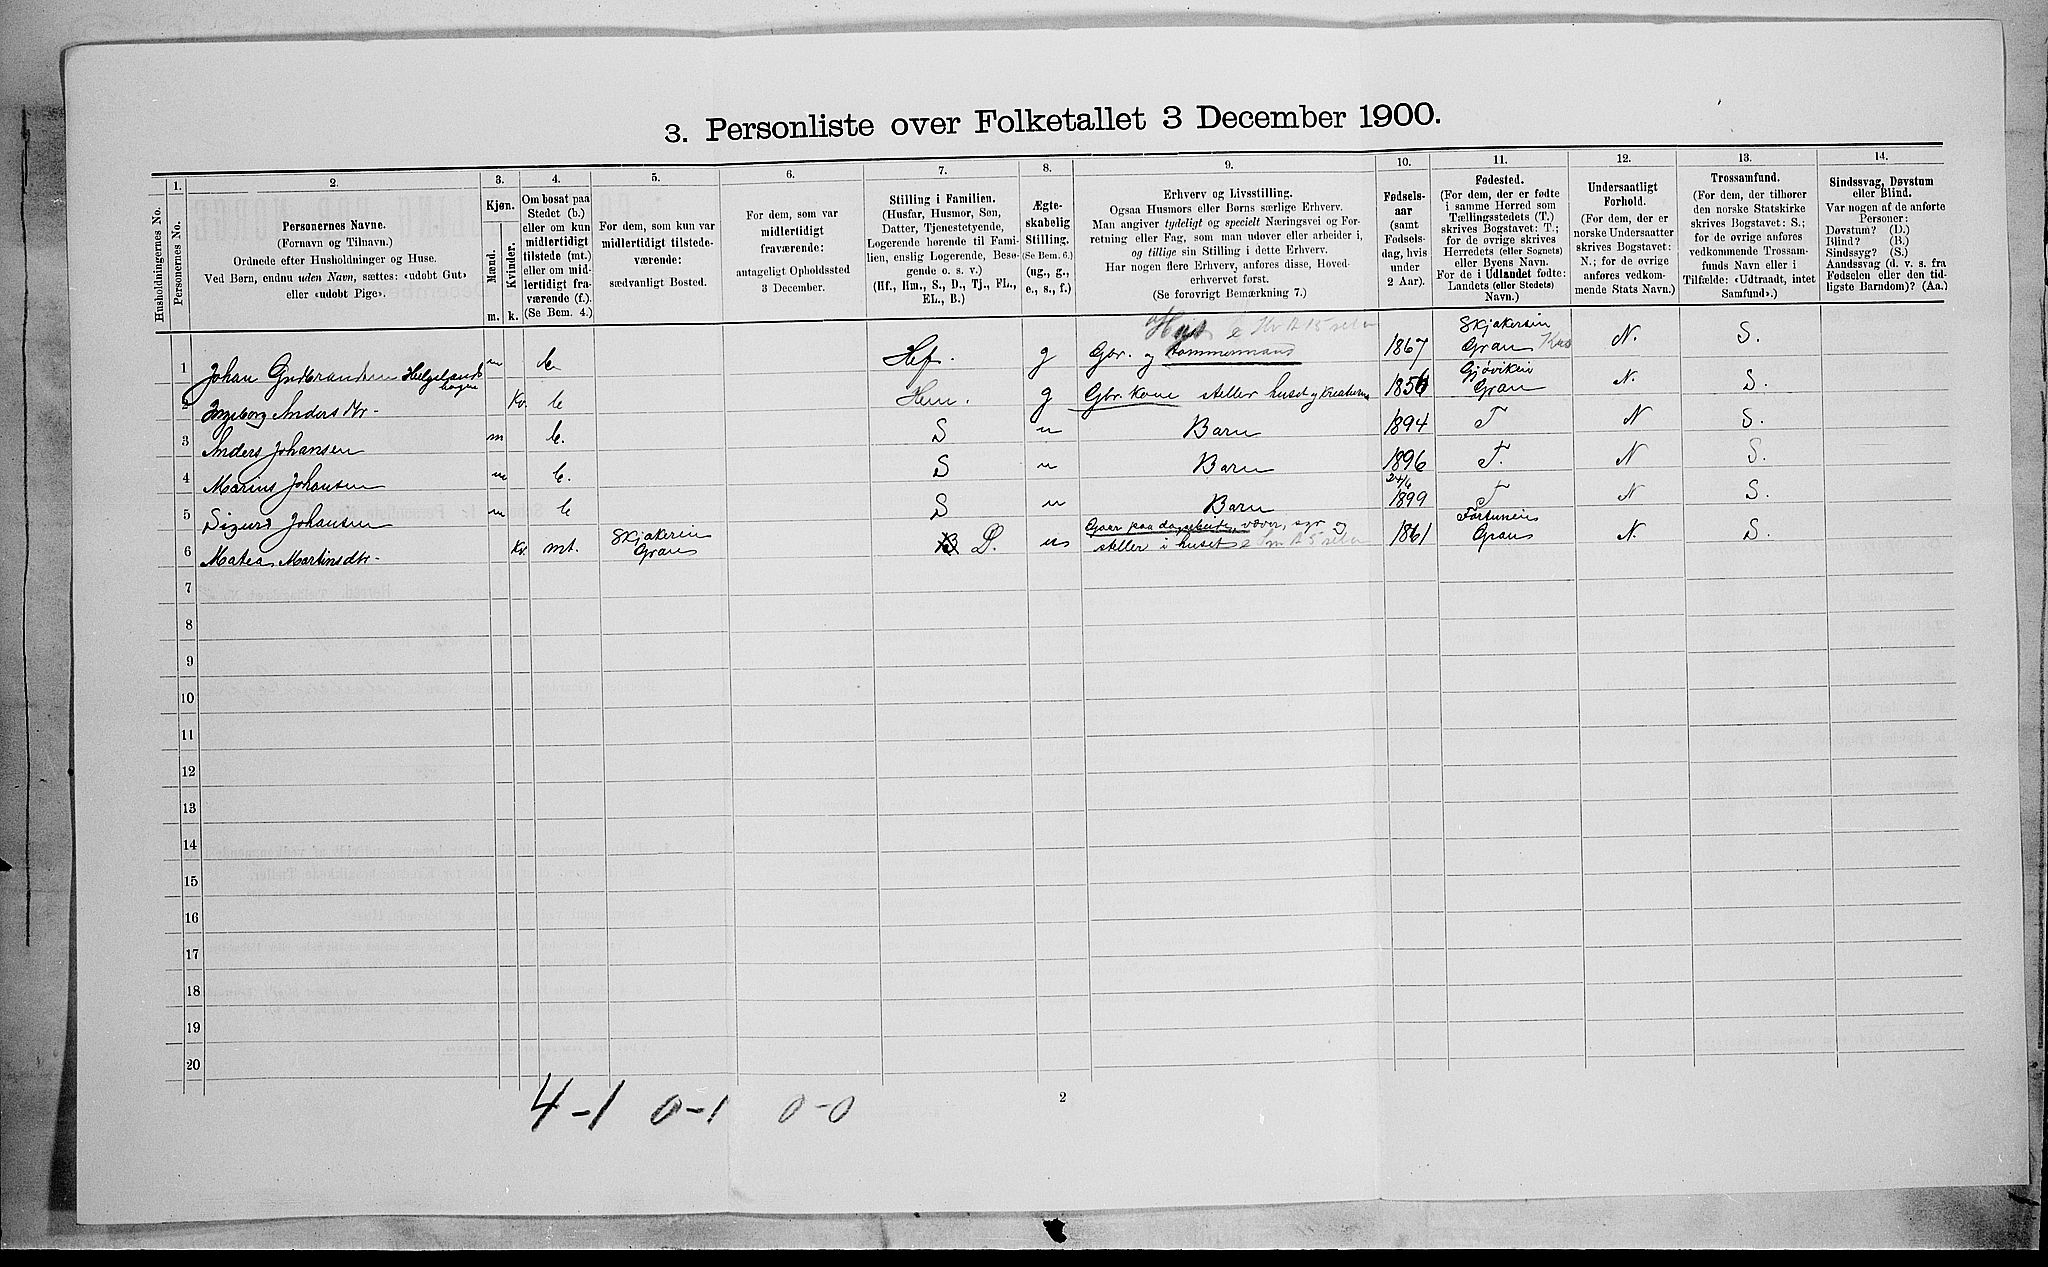 3. Personliste over Folketallet 3 December 1900.
Husholdningernes No.
1.
Personernes No.
2.
Personernes Navne.
(Fornavn og Tilnavn.)
Ordnede efter Husholdninger og Huse.
Ved Børn, endnu uden Navn, sættes: «udøbt Gut»
eller «udøbt Pige».
3.
Kjøn.
Mænd.
Kvinder.
m. k.
4.
Om bosat paa
Stedet (b.)
eller om kun
midlertidigt
tilstede (mt.)
eller om mid-
lertidigt fra-
værende (f.).
(Se Bem. 4.)
5.
For dem, som kun var
midlertidigt tilstede-
værende:
sædvanligt Bosted.
6.
For dem, som var
midlertidigt
fraværende:
antageligt Opholdssted
3 December.
7.
Stilling i Familien.
(Husfar, Husmor, Søn,
Datter, Tjenestetyende,
Logerende hørende til Fami-
lien, enslig Logerende, Besø-
gende o. s. v.)
(Hf., Hm., S., D., Tj., FL.,
EL., B.)
8.
Ægte-
skabelig
Stilling.
(Se Bem. 6.)
(ug., g.,
e., s., f.)
9.
Erhverv og Livsstilling.
Ogsaa Husmors eller Børns særlige Erhverv.
Man angiver tydeligt og specielt Næringsvei og For-
retning eller Fag, som man udøver eller arbeider i,
og tillige sin Stilling i dette Erhverv.
Har nogen flere Erhverv, anføres disse, Hoved-
erhvervet først.
(Se forøvrigt Bemærkning 7.)
10.
Fødsels-
aar
(samt
Fødsels-
dag, hvis
under
2 Aar).
11.
Fødested.
(For dem, der er fødte
i samme Herred som
Tællingsstedets (T.)
skrives Bogstavet: T.;
for de øvrige skrives
Herredets (eller Sognets)
eller Byens Navn.
For de i Udlandet fødte:
Landets (eller Stedets)
Navn.)
12.
Undersaatligt
Forhold.
(For dem, der er
norske Undersaatter
skrives Bogstavet:
N.; for de øvrige
anføres vedkom-
mende Stats Navn.)
13.
Trossamfund.
(For dem, der tilhører
den norske Statskirke
skrives Bogstavet: S.;
for de øvrige anføres
vedkommende Trossam-
funds Navn eller i
Tilfælde: «Udtraadt, intet
Samfund».)
14.
Sindssvag, Døvstum
eller Blind.
Var nogen af de anførte
Personer:
Døvstum? (D.)
Blind? (B.)
Sindssyg? (S.)
Aandssvag (d. v. s. fra
Fødselen eller den tid-
ligste Barndom)? (Aa.)
1 Johan Gudbrandsen Helgelands
hagen m b Hf. g Gbr. og tømmermand 1867 Skjakersin
Gran N. S.
2 Ingeborg Andersdtr- Kv. b Hm. g Gbr. Kone steller huset og kreaturene 1856 Gjøviken
Gran N. S.
3 Anders Johansen m b. S u Barn 1894 T N S.
4 Marius Johansen m b. S u Barn 1896 T. N S.
5 Sigurd Johansen m b S u Barn 24/6
1899 T N S.
6 Matea Martinsdtr- Kv. mt. Skjakersin
Gran D. u Gaar paa dagarbeide, væver, syr og
steller i huset 1861
Gran N. S.
7
8
9
10
11
12
13
14
15
16
17
18
19
20
4-1 0-1 0-0
2